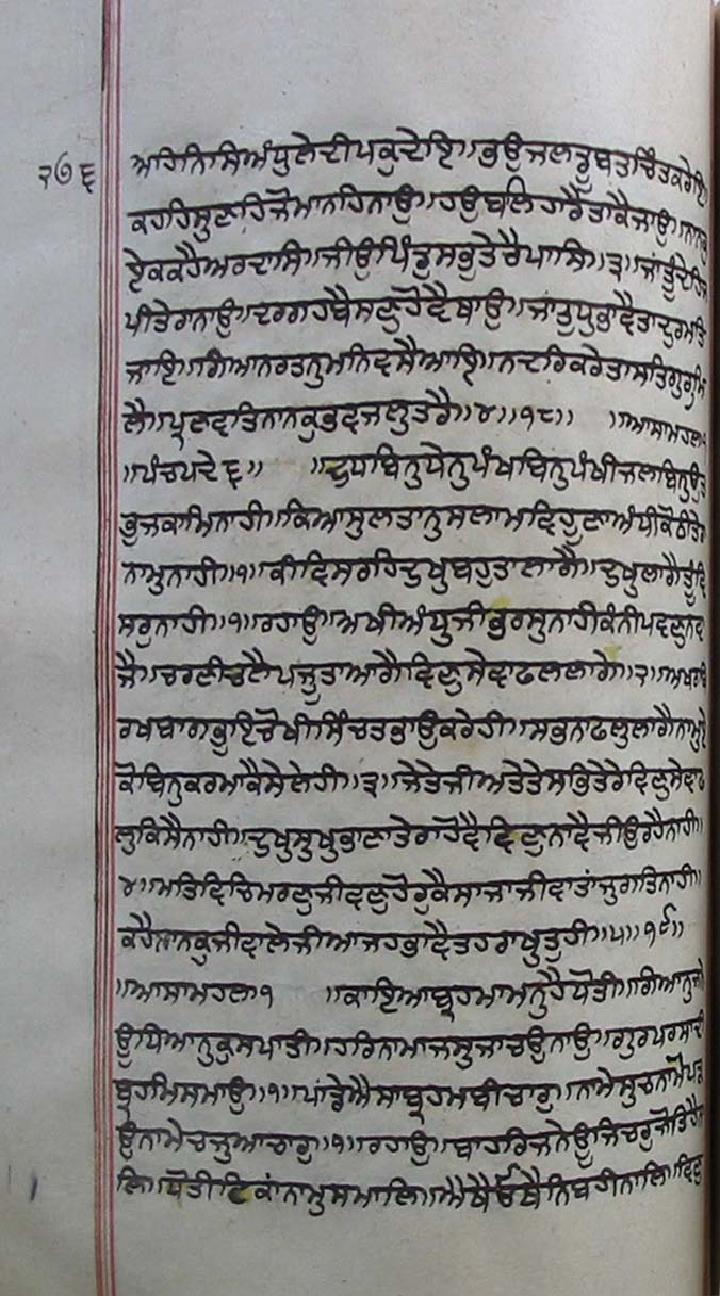 ੨੭੬
ਅਹਿਨਿਸਿਅੰਧੁਲੇਦੀਪਕੁਦੇਇ॥ਭਉਜਲਡੂਬਤਚਿੰਤਕਰੇਇ
ਕਹਹਿਸੁਣਹਿਜੋਮਾਨਹਿਨਾਉ॥ਹਉਬਲਿਹਾਰੈਤਾਕੈਜਾਉ॥ਨਾਨਕੁ
ਏਕਕਹੈਅਰਦਾਸਿ॥ਜੀਉਪਿੰਡੁਸਭੁਤੇਰੈਪਾਸਿ॥੩॥ਜਾਂਤੂੰਦੇਹਿਜ
ਪੀਤੇਰਾਨਾਉ॥ਦਰਗਹਬੈਸਣੁਹੋਵੈਥਾਉ॥ਜਾਂਤੁਧੁਭਾਵੈਤਾਦੁਰਮਤਿ
ਜਾਇ॥ਗਿਆਨਰਤਨੁਮਨਿਵਸੈਆਇ॥ਨਦਰਿਕਰੇਤਾਸਤਿਗੁਰੁਮਿ
ਲੈ॥ਪ੍ਰਣਵਤਿਨਾਨਕੁਭਵਜਲੁਤਰੈ॥੪॥੧੮॥ ॥ਆਸਾਮਹਲਾ੧
॥ਪੰਚਪਦੇ੬॥ ॥ਦੁਧਬਿਨੁਧੇਨੁਪੰਖਬਿਨੁਪੰਖੀਜਲਬਿਨੁਉਤ
ਭੁਜਕਾਮਿਨਾਹੀ॥ਕਿਆਸੁਲਤਾਨੁਸਲਾਮਵਿਹੂਣਾਅੰਧੀਕੋਠੀਤੇਰਾ
ਨਾਮੁਨਾਹੀ॥੧॥ਕੀਵਿਸਰਹਿਦੁਖੁਬਹੁਤਾਲਾਗੈ॥ਦੁਖੁਲਾਗੈਤੂੰਵਿ
ਸਰੁਨਾਹੀ॥੧॥ਰਹਾਉ॥ਅਖੀਅੰਧੁਜੀਭਰਸੁਨਾਹੀਕੰਨੀਪਵਣੁਨਵ
ਜੈ॥ਚਰਣੀਚਲੈਪਜੂਤਾਆਗੈਵਿਣੁਸੇਵਾਫਲਲਾਗੇ॥੨॥ਅਖਰਬਿ
ਰਖਬਾਗਭੁਇਚੋਖੀਸਿੰਚਤਭਾਉਕਰੇਹੀ॥ਸਭਨਾਫਲੁਲਾਗੈਨਾਮੁਏ
ਕੋਬਿਨੁਕਰਮਾਕੈਸੇਲੇਹੀ॥੩॥ਜੇਤੇਜੀਅਤੇਤੇਸਭਿਤੇਰੇਵਿਣੁਸੇਵਾਫ
ਲੁਕਿਸੈਨਾਹੀ॥ਦੁਖੁਸੁਖੁਭਾਣਾਤੇਰਾਹੋਵੈਵਿਣੁਨਾਵੈਜੀਉਰਹੈਨਾਹੀ॥
੪॥ਮਤਿਵਿਚਿਮਰਣੁਜੀਵਣੁਹੋਰੁਕੈਸਾਜਾਜੀਵਾਤਾਂਜੁਗਤਿਨਾਹੀ॥
ਕਹੈਨਾਨਕੁਜੀਵਾਲੇਜੀਆਜਹਭਾਵੈਤਹਰਾਖੁਤੁਹੀ॥੫॥੧੯॥
॥ਆਸਾਮਹਲਾ੧ ॥ਕਾਇਆਬ੍ਰਹਮਾਮਨੁਹੈਧੋਤੀ॥ਗਿਆਨੁਜਨੇ
ਊਧਿਆਨੁਕੁਸਪਾਤੀ॥ਹਰਿਨਾਮਾਜਸੁਜਾਚਉਨਾਉ॥ਗੁਰਪਰਸਾਦੀ
ਬ੍ਰਹਮਿਸਮਾਉ॥੧॥ਪਾਂਡੇਐਸਾਬ੍ਰਹਮਬੀਚਾਰੁ॥ਨਾਮੇਸੁਚਨਾਮੋਪੜ
ਉਨਾਮੇਚਜੁਆਚਾਰੁ॥੧॥ਰਹਾਉ॥ਬਾਹਰਿਜਨੇਊਜਿਚਰੁਜੋਤਿਹੈਨਾ
ਲਿ॥ਧੋਤੀਟਿਕਾਨਾਮੁਸਮਾਲਿ॥ਐਥੈਓਥੈਨਿਬਹੀਨਾਲਿ॥ਵਿਣੁ